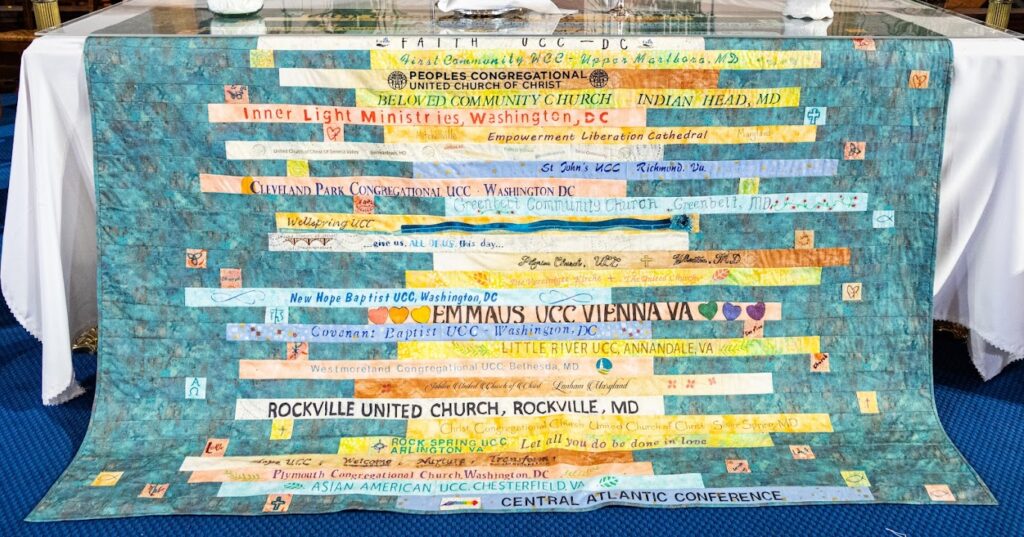 FAITH UCC - DC
First Community UCC - Upper Marlboro, MD
PEOPLES CONGREGATIONAL
UNITED CHURCH OF CHRIST
BELOVED COMMUNITY CHURCH INDIAN HEAD, MD
Inner Light Ministries, Washington, DC
Empowerment Liberation Cathedral Maryland
United Church of Christ of Seneca Valley
St John's UCC Richmond, Va.
CLEVELAND PARK CONGREGATIONAL UCC · WASHINGTON DC
Greenbelt Community Church, Greenbelt, MD
Wellspring UCC
...give us, ALL OF US, this day...
Church, UCC Wheaton, MD
The United Church
New Hope Baptist UCC, Washington, DC
EMMAUS UCC VIENNA VA
Covenant Baptist UCC - Washington, DC
LITTLE RIVER UCC, ANNANDALE, VA
Westmoreland Congregational UCC, Bethesda, MD
Jubilee United Church of Christ Lanham Maryland
ROCKVILLE UNITED CHURCH, ROCKVILLE, MD
Christ Congregational Church United Church of Christ Silver Spring, MD
ROCK SPRING UCC
ARLINGTON VA
Let all you do be done in love
UCC, Welcome, Nurture, Transform
Plymouth Congregational Church, Washington, DC
ASIAN AMERICAN UCC, CHESTERFIELD, VA
CENTRAL ATLANTIC CONFERENCE